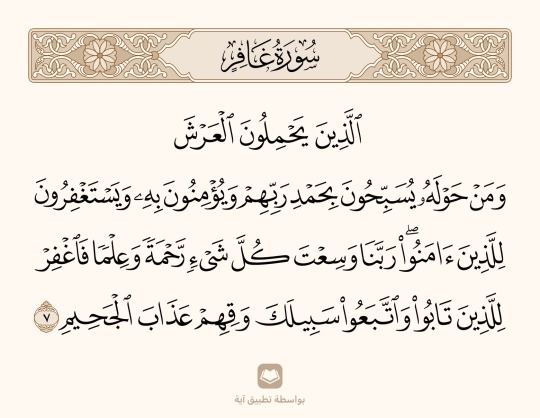 سُورَةُ غَافِرٍ
ٱلَّذِينَ يَحۡمِلُونَ ٱلۡعَرۡشَ
وَمَنۡ حَوۡلَهُۥ يُسَبِّحُونَ بِحَمۡدِ رَبِّهِمۡ وَيُؤۡمِنُونَ بِهِۦ وَيَسۡتَغۡفِرُونَ
لِلَّذِينَ ءَامَنُواْۖ رَبَّنَا وَسِعۡتَ كُلَّ شَيۡءٖ رَّحۡمَةٗ وَعِلۡمٗا فَٱغۡفِرۡ
لِلَّذِينَ تَابُواْ وَٱتَّبَعُواْ سَبِيلَكَ وَقِهِمۡ عَذَابَ ٱلۡجَحِيمِ ٧
بواسطة تطبيق آية